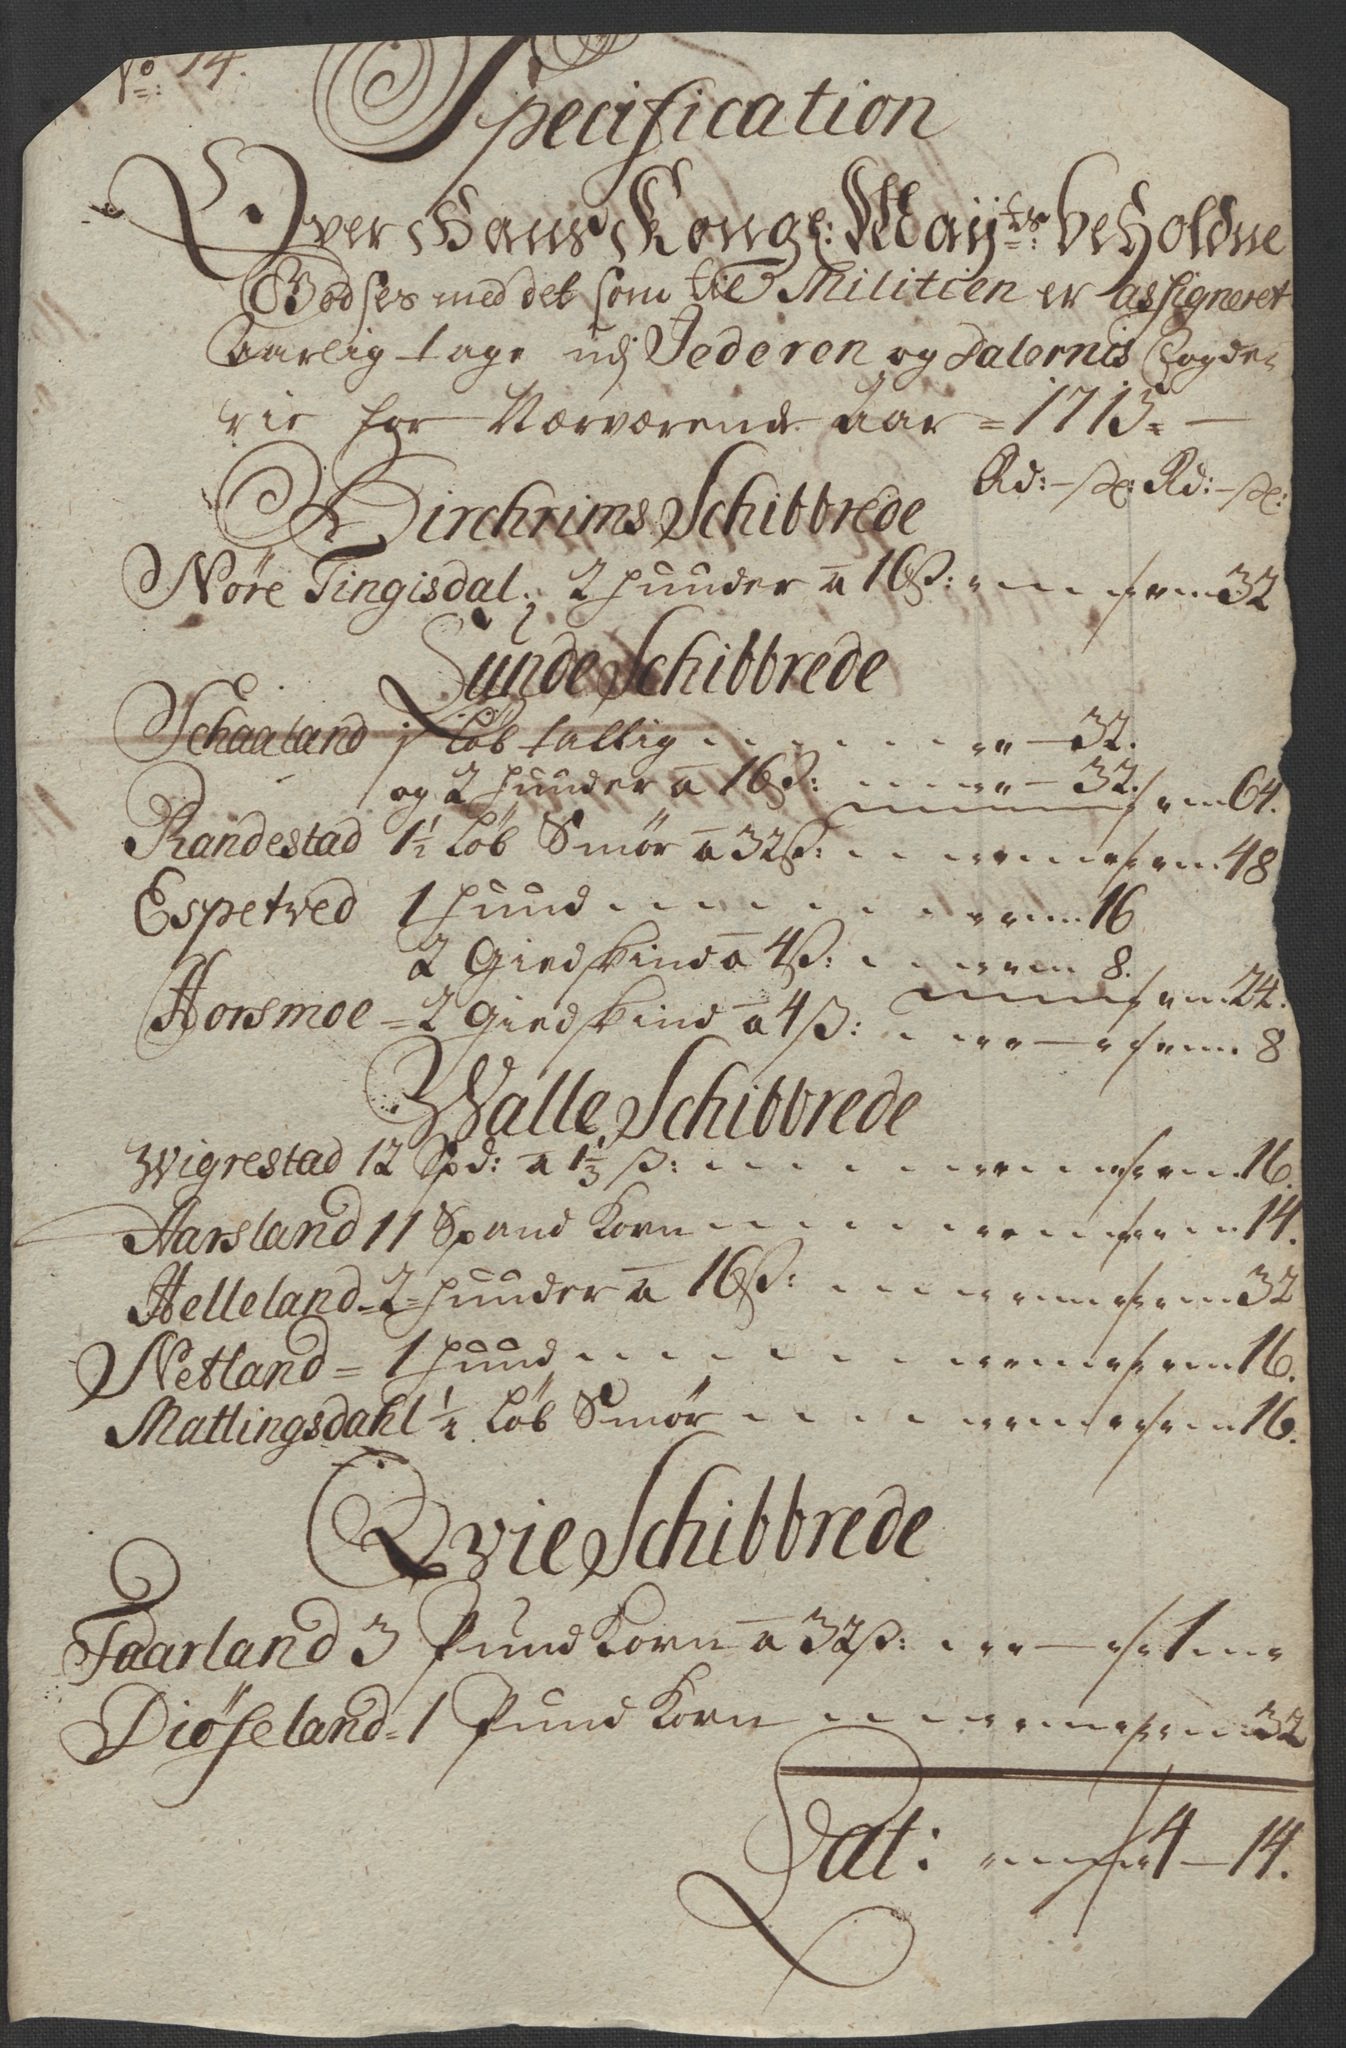 No: 14.
Specification
Over Hans Kongl: Maÿts: beholdne
Godses med det som til Militien er assigneret
Aarlig tage udj Jederen og Dalernis fogde
rie for Nærværende Aar = 1715. —
Rd: — ß: Rd: — ß:
Birchrims Schibbrede
Nöre Tingisdal, 2 huuder a 16 ß: 32
Lunde Schibbrede
Schaaland j löb tallig 32.
og 2 huuder a 16 ß: 32. 64.
Randestad 1½ löb Smör a 32 ß: 48
Espetved 1 huud 16
2 Giedskind a 4 ß: 8. 24.
Horsmoe = 2 Giedskind a 4 ß: 8
Walle Schibbrede
Wigrestad 12 Spd: a 1⅓ ß: 16.
Aarsland 11 Spand Korn 14.
Helleland = 2 huuder a 16 ß: 32
Netland = 1 huud 16.
Matlingsdahl ½ löb Smör 16.
Qvie Schibbrede
Taarland 3 Pund Korn a 32 ß: 1
Diöseland = 1 Pund Korn 32
Lat: 4 — 14.